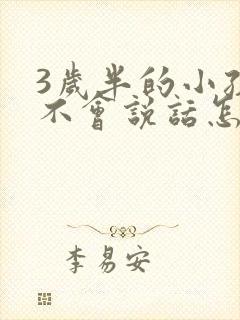 3歲半的小孩
不會說話怎
李易安